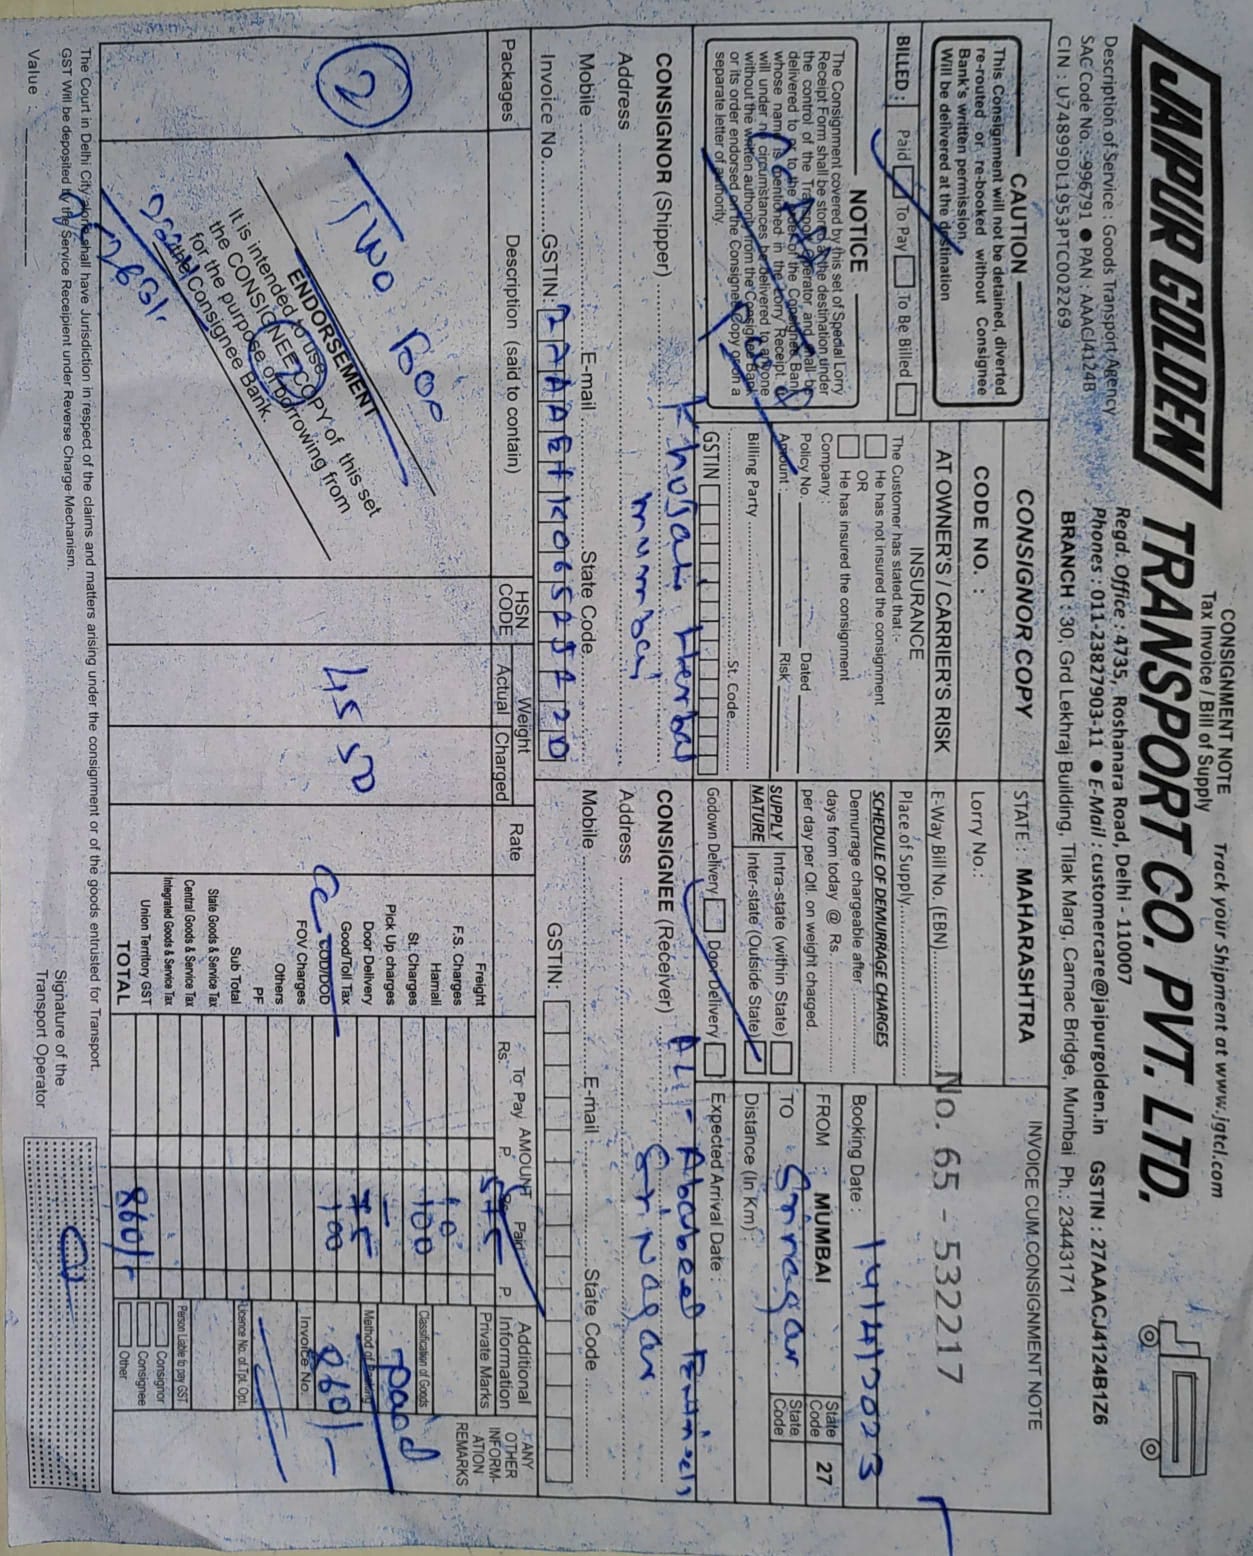 CONSIGNMENT NOTE
Tax Invoice / Bill of Supply
Track your Shipment at www.jgtcl.com
JAIPUR GOLDEN TRANSPORT CO. PVT. LTD.
Regd. Office : 4735, Roshanara Road, Delhi - 110007
Description of Service : Goods Transport Agency
Phones : 011-23827903-11 ● E-Mail : customercare@jaipurgolden.in GSTIN : 27AAACJ4124B1Z6
SAC Code No. : 996791 ● PAN : AAACJ4124B
CIN : U74899DL1953PTC002269 BRANCH : 30, Grd Lekhraj Building, Tilak Marg, Carnac Bridge, Mumbai Ph.: 23443171
CAUTION
This Consignment will not be detained, diverted
re-routed or re-booked without Consignee
Bank's written permission.
Will be delivered at the destination
BILLED : Paid To Pay To Be Billed
NOTICE
The Consignment covered by this set of Special Lorry
Receipt Form shall be stored at the destination under
the control of the Transport Operator and shall be
delivered to or to the order of the Consignee Bank
whose name is mentioned in the Lorry Receipt. It
will under no circumstances be delivered to anyone
without the written authority from the Consignee Bank
or its order endorsed on the Consignee Copy or on a
separate letter of authority.
CONSIGNOR COPY
CODE NO. :
AT OWNER'S / CARRIER'S RISK
INSURANCE
The Customer has stated that :-
He has not insured the consignment
OR
He has insured the consignment
Company :
Policy No. Dated
Amount Risk
Billing Party St. Code
GSTIN
STATE : MAHARASHTRA
Lorry No.:
E-Way Bill No. (EBN)
Place of Supply
SCHEDULE OF DEMURRAGE CHARGES
Demurrage chargeable after
days from today @ Rs.
per day per Qtl. on weight charged.
SUPPLY NATURE
Intra-state (within State)
Inter-state (Outside State)
Godown Delivery Door Delivery
INVOICE CUM CONSIGNMENT NOTE
No. 65 - 532217
Booking Date : 14/4/2023
FROM : MUMBAI State Code 27
TO : Srinagar State Code
Distance (In Km) :
Expected Arrival Date :
CONSIGNOR (Shipper) Khusahi Herbal
Address mumbai
Mobile E-mail State Code
Invoice No. GSTIN:
CONSIGNEE (Receiver) ALI-Ababeel
Address Srinagar
Mobile E-mail : State Code
GSTIN:
Packages Description (said to contain) HSN CODE Weight Actual Charged Rate AMOUNT To Pay Rs. P. Paid P. Additional Information Private Marks ANY OTHER INFORMATION REMARKS
2
TWO BOP
45 50
ENDORSEMENT
It is intended to use
the CONSIGNEE COPY of this set
for the purpose of borrowing from
the Consignee Bank
Freight
F.S. Charges 10
Hamali 100
St. Charges
Pick Up charges 75
Door Delivery 100
Good/Toll Tax
COD/DOD
FOV Charges
Others
PF
Sub Total
State Goods & Service Tax
Central Goods & Service Tax
Integrated Goods & Service Tax
Union Territory GST
TOTAL 860/-
Classification of Goods
Paid
Method of Packing
860/-
Invoice No.
Licence No. of Tpt. Opt.
Person Liable to pay GST
Consignor
Consignee
Other
The Court in Delhi City alone shall have Jurisdiction in respect of the claims and matters arising under the consignment or of the goods entrusted for Transport.
GST Will be deposited by the Service Receipient under Reverse Charge Mechanism.
Value :
Signature of the
Transport Operator